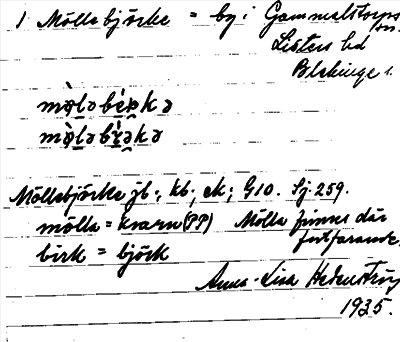 1 Möllebjörke = by i Gammalstorps sn.
Listers hd
Blekinge l.
mø̀lәbɛ̀rkә
mø̀lәbɛ̀rәkә
Möllebjörke jb., kb., ek., G10. Sj. 259.
mölla = kvarn (PP) Mölla finnes där
birk = björk fortfarande.
Anna-Lisa Hedenstierna
1935.